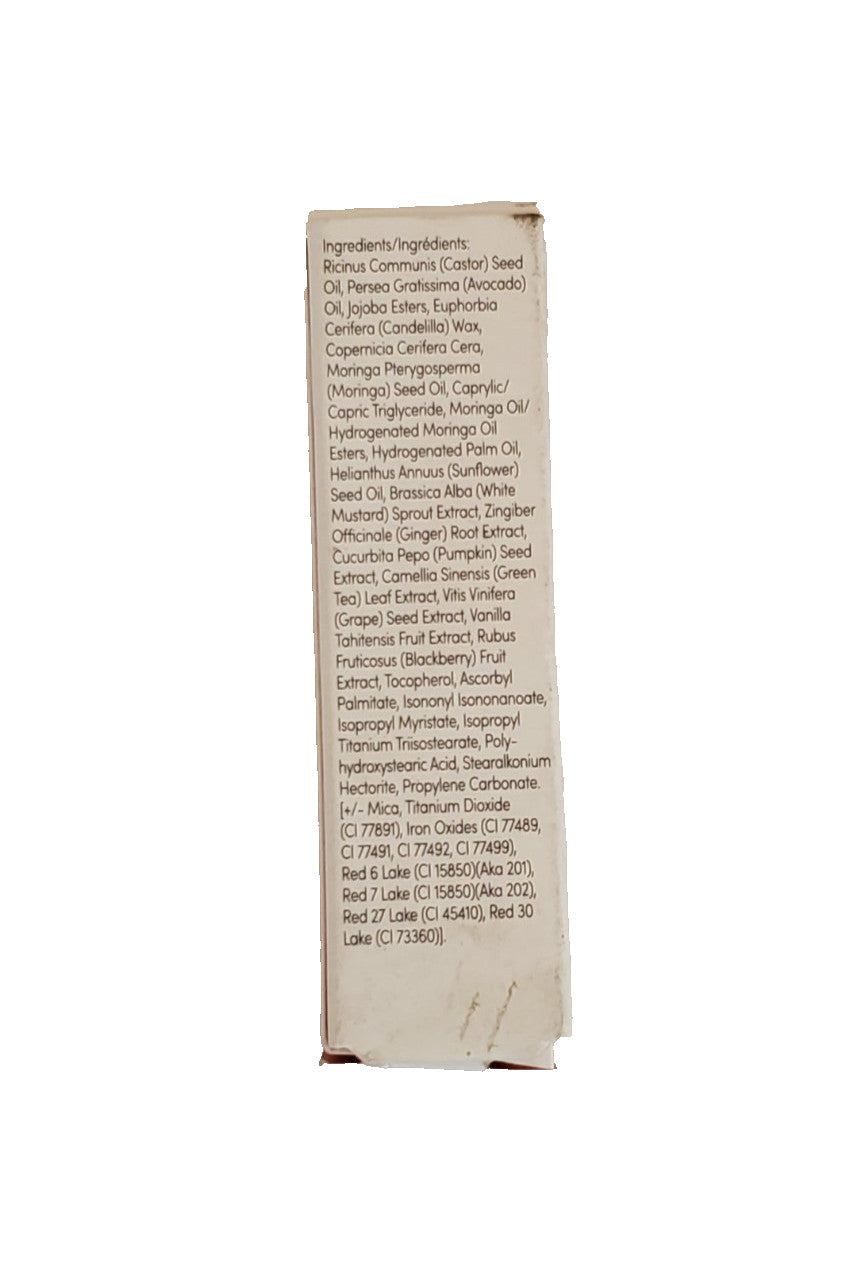 Ingredients/Ingrédients:
Ricinus Communis (Castor) Seed
Oil, Persea Gratissima (Avocado)
Oil, Jojoba Esters, Euphorbia
Cerifera (Candelilla) Wax,
Copernicia Cerifera Cera,
Moringa Pterygosperma
(Moringa) Seed Oil, Caprylic/
Capric Triglyceride, Moringa Oil/
Hydrogenated Moringa Oil
Esters, Hydrogenated Palm Oil,
Helianthus Annuus (Sunflower)
Seed Oil, Brassica Alba (White
Mustard) Sprout Extract, Zingiber
Officinale (Ginger) Root Extract,
Cucurbita Pepo (Pumpkin) Seed
Extract, Camellia Sinensis (Green
Tea) Leaf Extract, Vitis Vinifera
(Grape) Seed Extract, Vanilla
Tahitensis Fruit Extract, Rubus
Fruticosus (Blackberry) Fruit
Extract, Tocopherol, Ascorbyl
Palmitate, Isononyl Isononanoate,
Isopropyl Myristate, Isopropyl
Titanium Triisostearate, Poly-
hydroxystearic Acid, Stearalkonium
Hectorite, Propylene Carbonate.
[+/- Mica, Titanium Dioxide
(CI 77891), Iron Oxides (CI 77489,
CI 77491, CI 77492, CI 77499),
Red 6 Lake (CI 15850)(Aka 201),
Red 7 Lake (CI 15850)(Aka 202),
Red 27 Lake (CI 45410), Red 30
Lake (CI 73360)].